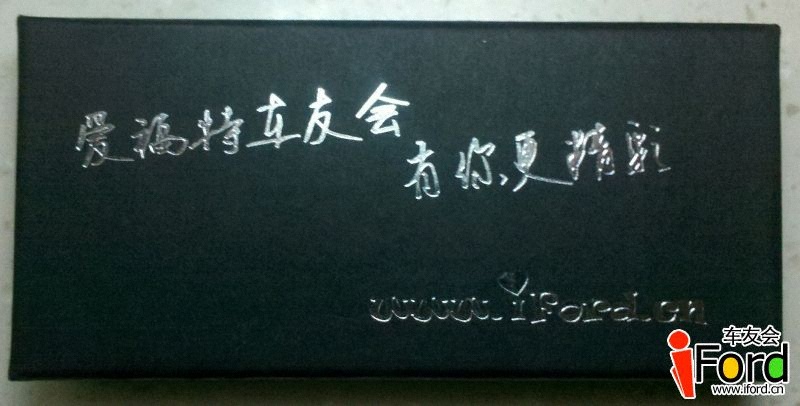 爱福特车友会
有你更精彩
www.iFord.cn
车友会
iFord
www.iford.cn